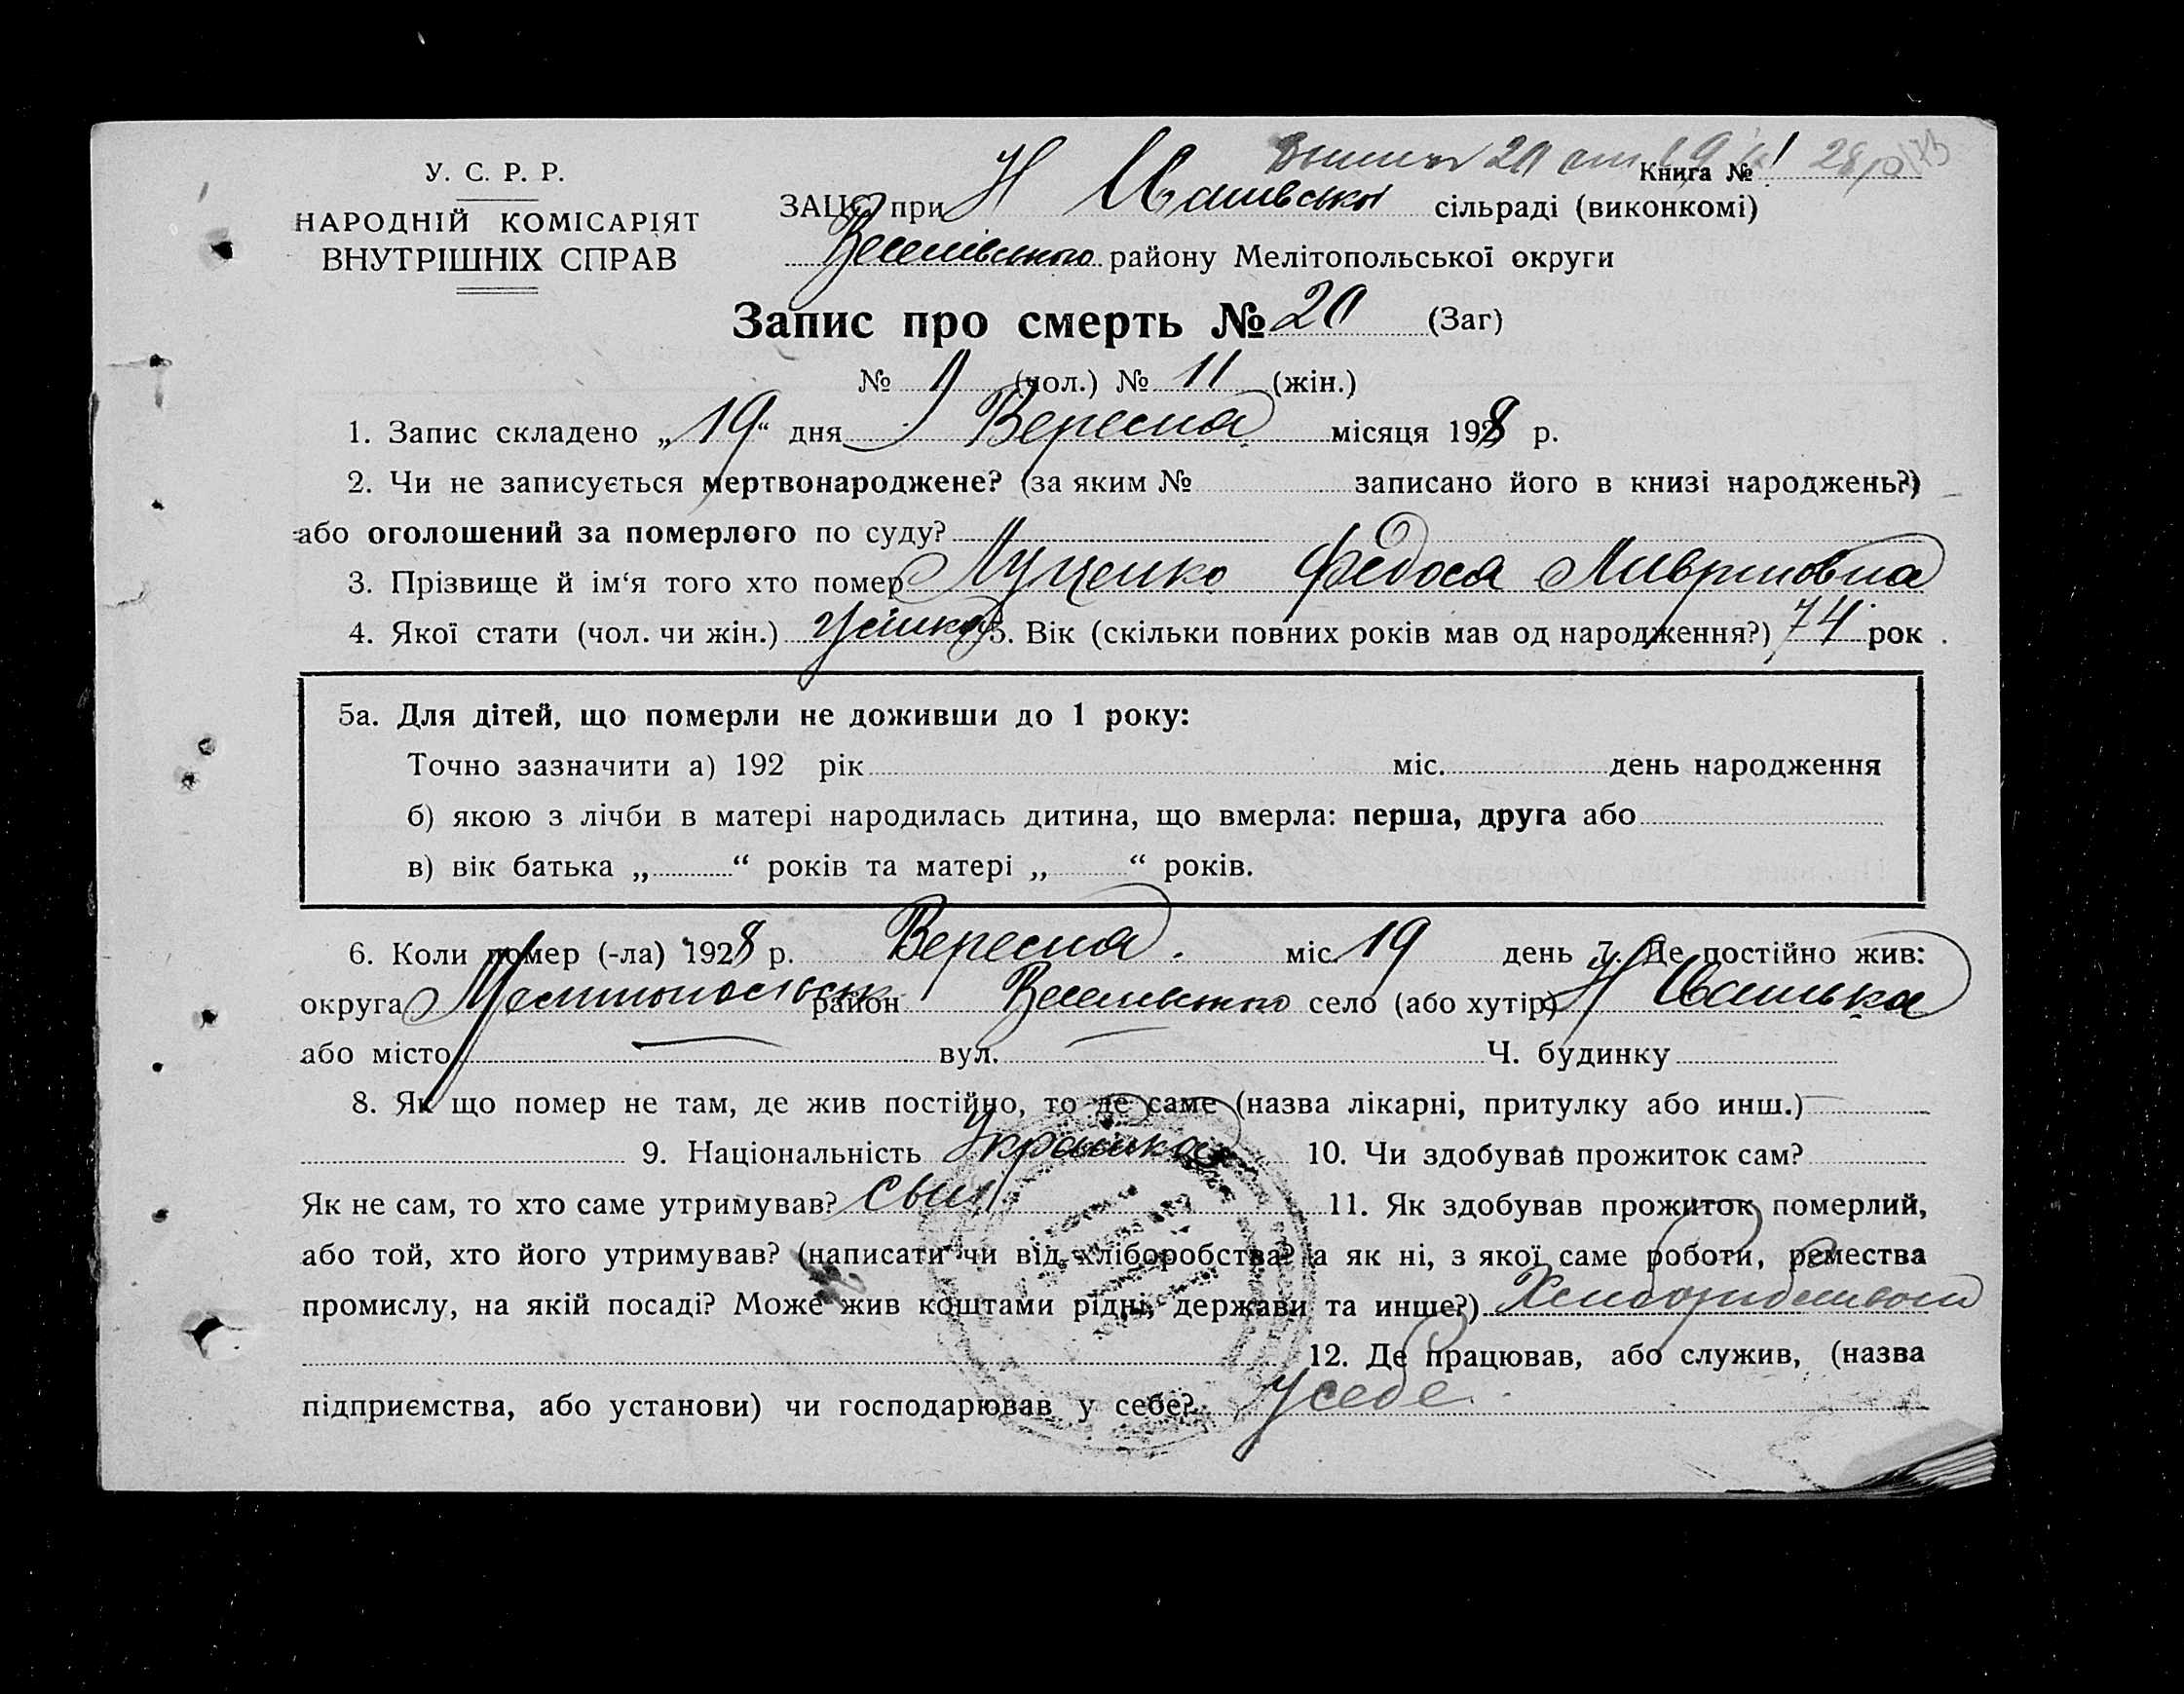 У. С. Р. Р.
НАРОДНІЙ КОМІСАРІЯТ
ВНУТРІШНІХ СПРАВ
Книга № 1
ЗАЦС при Н сільраді (виконкомі)
Веселівського району Мелітопольської округи
Запис про смерть № 20 (Заг)
№ (чол.) № 11 (жін.)
1. Запис складено „19“ дня Вересня місяця 1928 р.
2. Чи не записується мертвонароджене? (за яким № записано його в книзі народжень?)
або оголошений за померлого по суду?
3. Прізвище й ім‘я того хто помер Луценко Федося
4. Якої стати (чол. чи жін.) 5. Вік (скільки повних років мав од народження?) 74 рок .
5а. Для дітей, що померли не доживши до 1 року:
Точно зазначити а) 192 рік міс. день народження
б) якою з лічби в матері народилась дитина, що вмерла: перша, друга або
в) вік батька „ “ років та матері „ “ років.
6. Коли помер (-ла) 1928 р. Вересня. міс. 19 день 7. Де постійно жив:
округа район село (або хутір) Н
або місто — вул. Ч. будинку
8. Як що помер не там, де жив постійно, то де саме (назва лікарні, притулку або инш.)
9. Національність Українка 10. Чи здобував прожиток сам?
Як не сам, то хто саме утримував? сын 11. Як здобував прожиток померлий,
або той, хто його утримував? (написати чи від хліборобства? а як ні, з якої саме роботи, ремества
промислу, на якій посаді? Може жив коштами рідні, держави та инше?)
12. Де працював, або служив, (назва
підприємства, або установи) чи господарював у себе? У себе